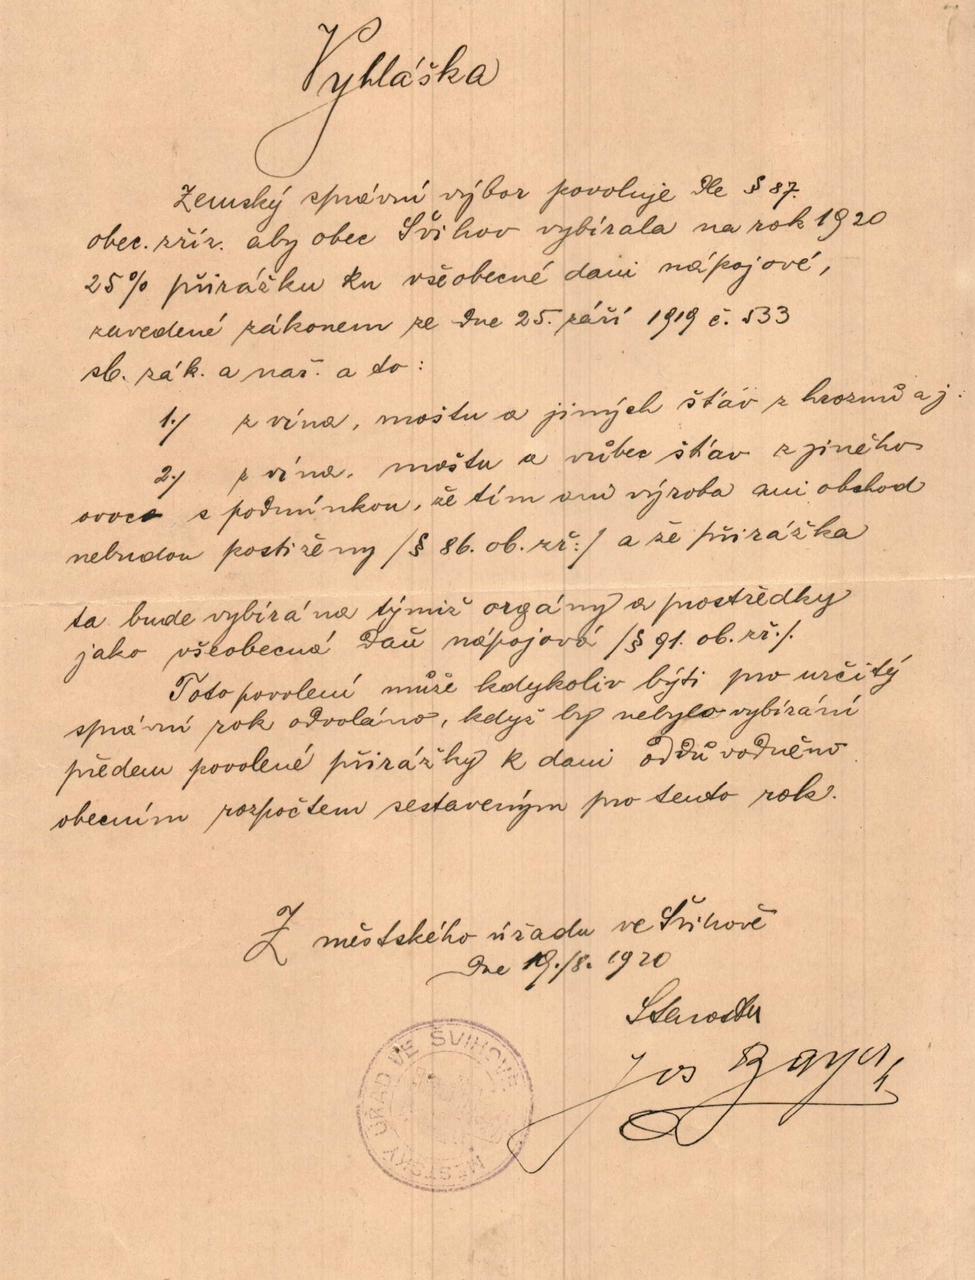 Vyhláška
Zemský správní výbor povoluje dle § 87.
obec. zříz. aby obec Švihov vybírala na rok 1920
25% přirážku ku všeobecné dani nápojové,
zavedené zákonem ze dne 25. září 1919 č. 533
sb. zák. a nař. a to:
1./ z vína, moštu a jiných šťáv z hroznů a j.
2./ z vína, moštu a vůbec šťáv z jiného
ovoce s podmínkou, že tím ani výroba ani obchod
nebudou postiženy /§ 86. ob. zř:/ a že přirážka
ta bude vybírána týmiž orgány a prostředky
jako všeobecná daň nápojová /§ 91. ob. zř./.
Toto povolení může kdykoliv býti pro určitý
správní rok odvoláno, když by nebylo vybírání
předem povolené přirážky k dani odůvodněno
obecním rozpočtem sestaveným pro tento rok.
Z městského úřadu ve Švihově
dne 19./8. 1920
Starosta
Jos Bayer
MĚSTSKÝ ÚŘAD VE ŠVIHOVĚ